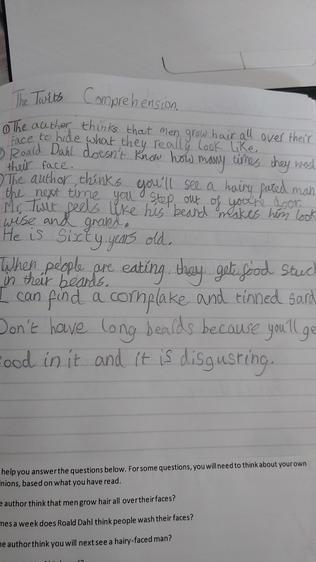 The Twits Comprehension
① The author thinks that men grow hair all over their
face to hide what they really look like.
Roald Dahl doesn't know how many times they
their face.
The author thinks you'll see a hairy faced man
the next time you step out of you're door.
Mr Twit feels like his beard makes him look
wise and grand.
He is sixty years old.
When people are eating they get food stuc
in their beards.
I can find a cornflake and tinned sard
Don't have long beards because you'll ge
ood in it and it is disgusting.
help you answer the questions below. For some questions, you will need to think about your own
nions, based on what you have read.
e author think that men grow hair all over their faces?
mes a week does Roald Dahl think people wash their faces?
e author think you will next see a hairy-faced man?